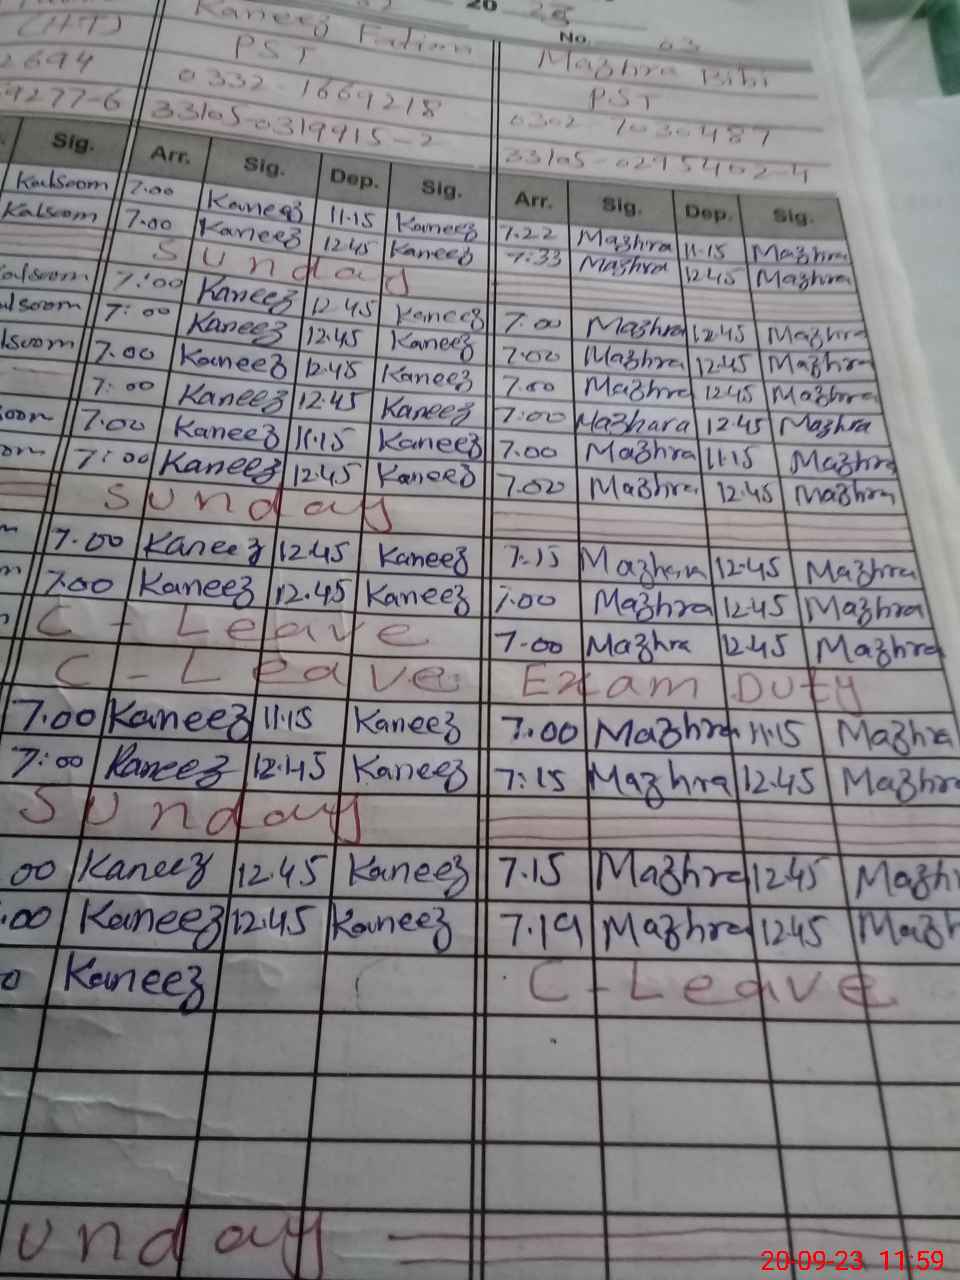 20 23
No. 03
(HT) Kaneez Fatima Mazhra Bibi
2694 PST PST
59277-6 0332-1669218 0302-7030487
33105-0319915-2 33105-0295402-4
Sig. Arr. Sig. Dep. Sig. Arr. Sig. Dep. Sig.
Kalsoom 7.00 Kaneez 11.15 Kaneez 7.22 Mazhra 11.15 Mazhra
Kalsoom 7.00 Kaneez 12.45 Kaneez 7:33 Mazhra 12.45 Mazhra
Sunday
alsoom 7:00 Kaneez 12.45 Kaneez 7:00 Mazhra 12.45 Mazhra
lsoom 7:00 Kaneez 12.45 Kaneez 7.00 Mazhra 12.45 Mazhra
lsoom 7.00 Kaneez 12.45 Kaneez 7.00 Mazhra 12.45 Mazhra
7:00 Kaneez 12.45 Kaneez 7:00 Mazhara 12.45 Mazhra
oom 7.00 Kaneez 11.15 Kaneez 7.00 Mazhra 11.15 Mazhra
om 7:00 Kaneez 12.45 Kaneez 7.00 Mazhra 12.45 Mazhra
Sunday
m 7.00 Kaneez 12.45 Kaneez 7.15 Mazhra 12.45 Mazhra
m 7.00 Kaneez 12.45 Kaneez 7.00 Mazhra 12.45 Mazhra
C-Leave 7.00 Mazhra 12.45 Mazhra
C-Leave Exam Duty
7.00 Kaneez 11.15 Kaneez 7.00 Mazhra 11.15 Mazhra
7:00 Kaneez 12.45 Kaneez 7:15 Mazhra 12.45 Mazhra
Sunday
00 Kaneez 12.45 Kaneez 7.15 Mazhra 12.45 Mazh
.00 Kaneez 12.45 Kaneez 7.19 Mazhra 12.45 Mazh
0 Kaneez C-Leave
unday
20-09-23 11:59